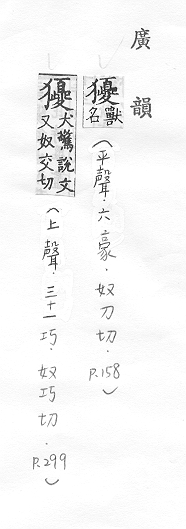 廣韻
獿
獸
名
(平聲.六豪.奴刀切.P.158)
獿
犬驚說文
又奴交切
(上聲.三十一巧.奴巧切.P.299)